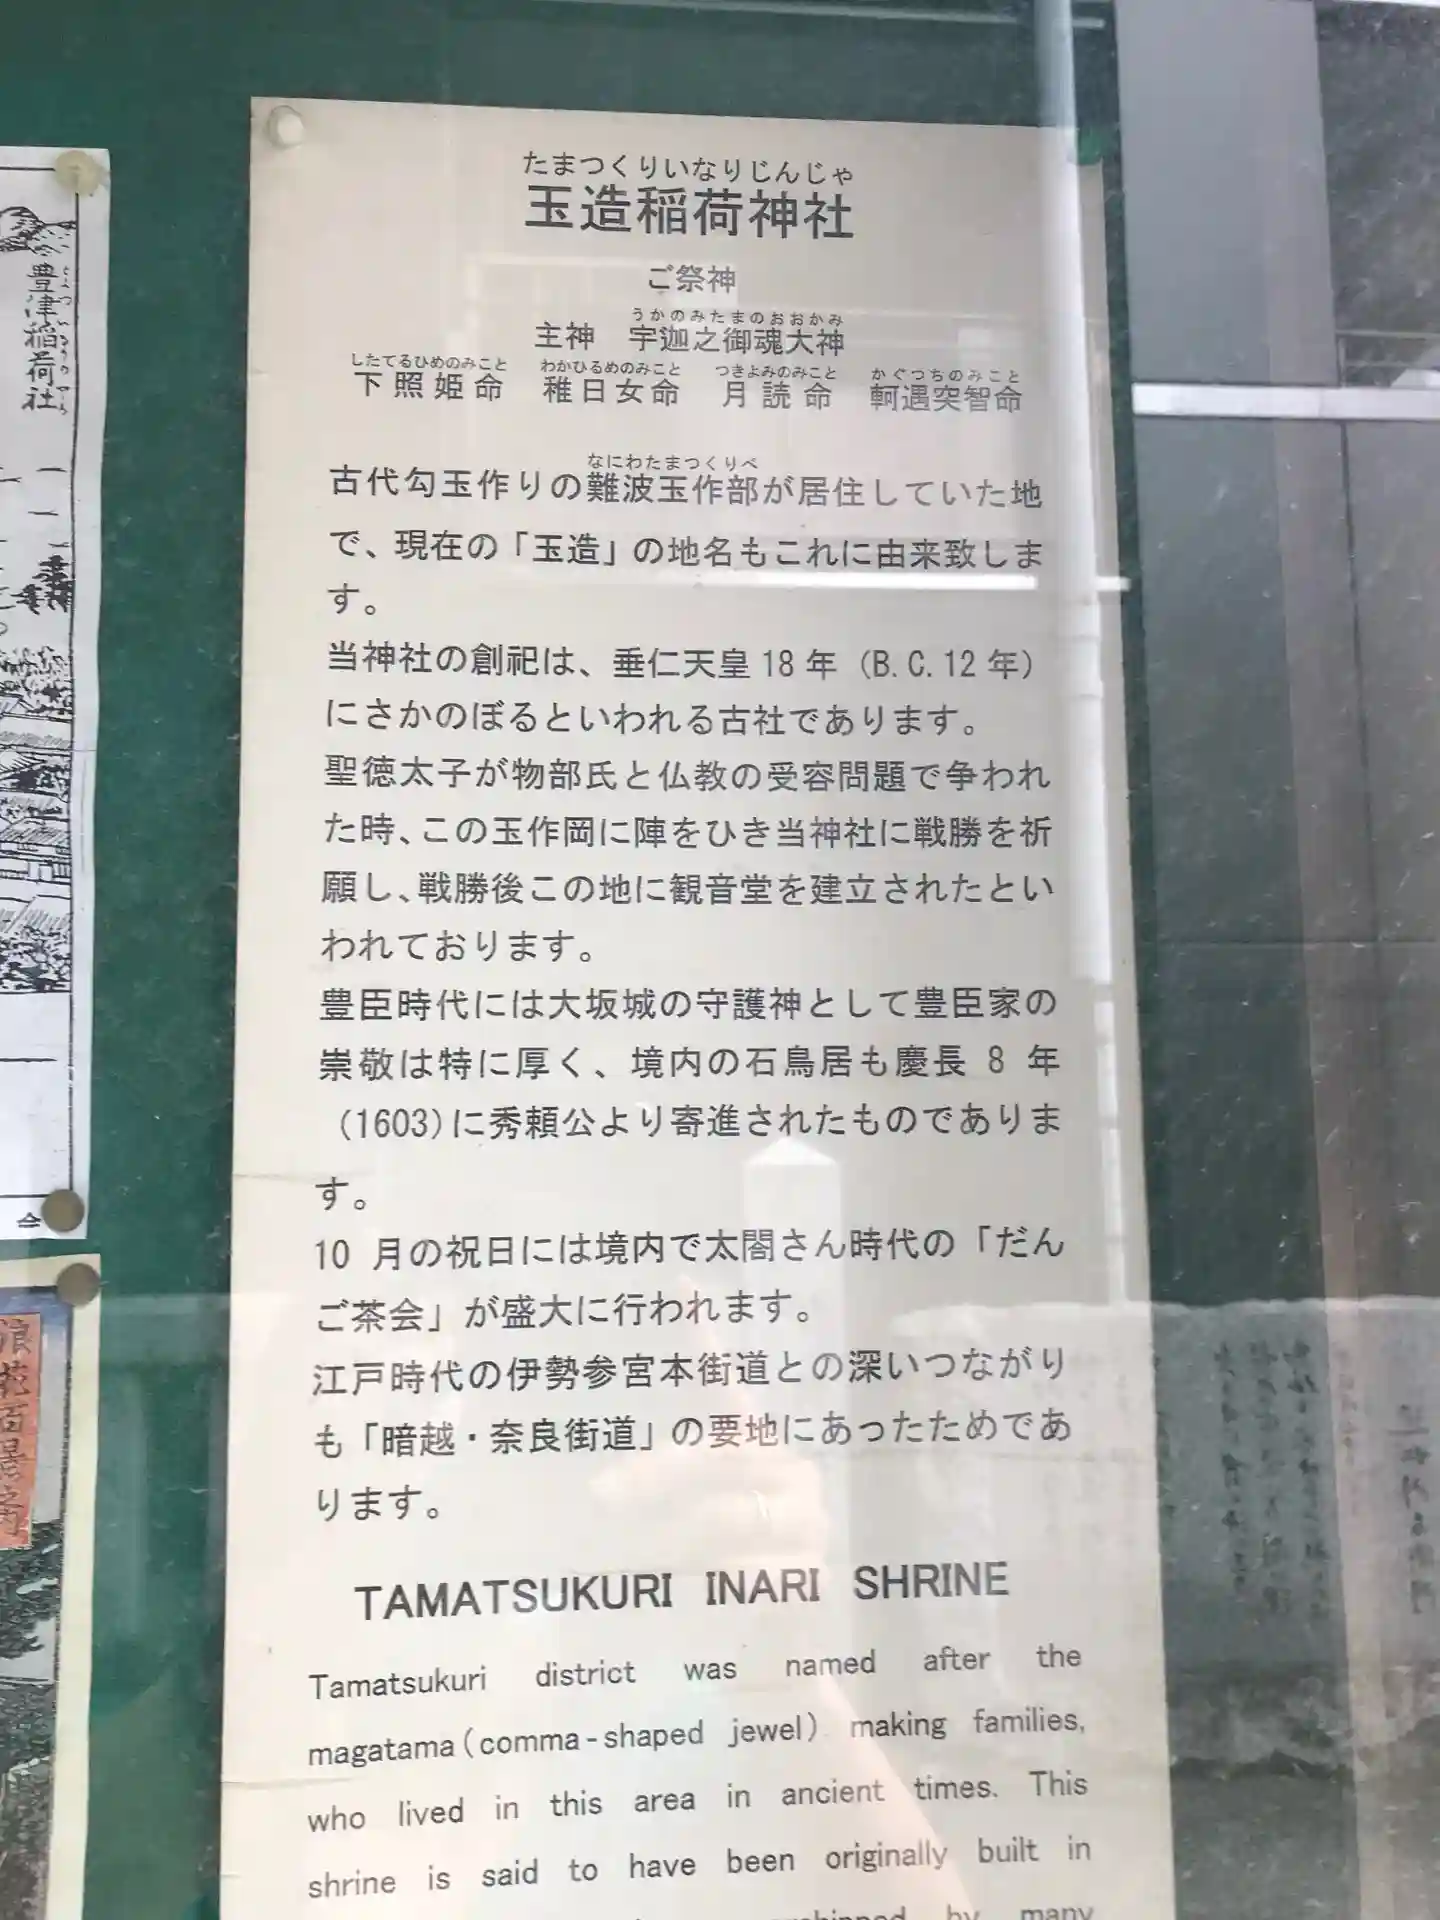 たまつくりいなりじんじゃ
玉造稲荷神社
ご祭神
うかのみたまのおおかみ
主神　宇迦之御魂大神
したてるひめのみこと　わかひるめのみこと　つきよみのみこと　かぐつちのみこと
下照姫命　稚日女命　月読命　軻遇突智命
なにわたまつくりべ
古代勾玉作りの難波玉作部が居住していた地
で、現在の「玉造」の地名もこれに由来致しま
す。
当神社の創祀は、垂仁天皇18年（B.C.12年）
にさかのぼるといわれる古社であります。
聖徳太子が物部氏と仏教の受容問題で争われ
た時、この玉作岡に陣をひき当神社に戦勝を祈
願し、戦勝後この地に観音堂を建立されたとい
われております。
豊臣時代には大坂城の守護神として豊臣家の
崇敬は特に厚く、境内の石鳥居も慶長 8 年
(1603)に秀頼公より寄進されたものでありま
す。
10 月の祝日には境内で太閤さん時代の「だん
ご茶会」が盛大に行われます。
江戸時代の伊勢参宮本街道との深いつながり
も「暗越・奈良街道」の要地にあったためであ
ります。
TAMATSUKURI INARI SHRINE
Tamatsukuri district was named after the
magatama(comma-shaped jewel) making families,
who lived in this area in ancient times. This
shrine is said to have been originally built in
by many
豊津稲荷社